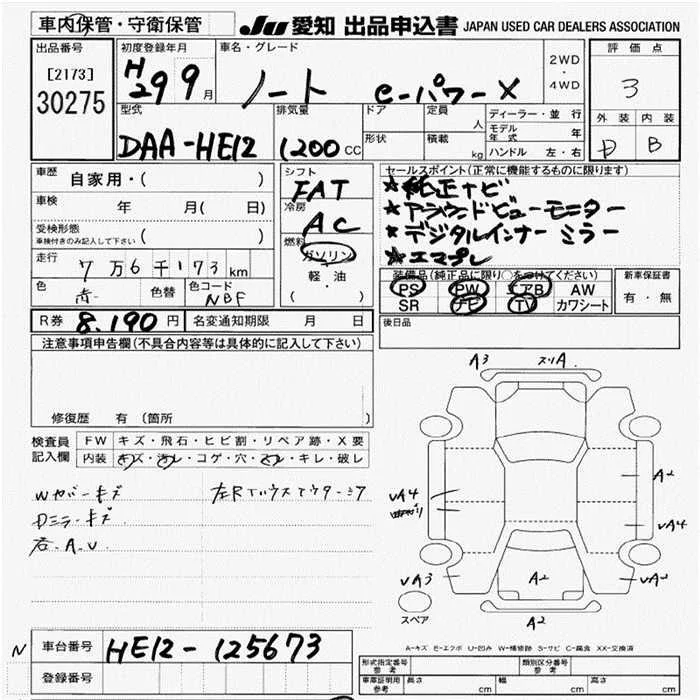 車内保管・守衛保管
JU 愛知 出品申込書 JAPAN USED CAR DEALERS ASSOCIATION
出品番号
[2173]
30275
初度登録年月
H29 9月
車名・グレード
ノート e-パワーX
2WD
・
4WD
評価点
3
外装 内装
D B
型式
DAA-HE12
排気量
1200 CC
ドア
形状
定員 人
積載 kg
ディーラー・並行
モデル年式 年
ハンドル 左・右
車歴 自家用・( )
車検 年 月( 日)
受検形態
車検付きのみ記入して下さい ( )
走行 7万6千173km
色 青 色替 色コード NBF
シフト
FAT
冷房
AC
燃料
ガソリン
軽・油
( )
セールスポイント(正常に機能するものに限ります)
★純正ナビ
★アラウンドビューモニター
★デジタルインナーミラー
★エマブレ
装備品(純正品に限り○をつけてください)
PS PW エアB AW
SR ナビ TV カワシート
新車保証書
有・無
R券 8,190円 名変通知期限 月 日
後日品
注意事項申告欄(不具合内容等は具体的に記入して下さい)
修復歴 有 (箇所
検査員記入欄
FW キズ・飛石・ヒビ割・リペア跡・X要
内装 キズ・汚レ・コゲ・穴・スレ・キレ・破レ
Dミラーキズ
右.A.U
A3 スリA
A2
UA4
UA4
UA3
A2
UA2
A2
スペア
A-キズ E-エクボ U-凹み W-補修跡 S-サビ C-腐食 XX-交換済
N
車台番号 HE12-125673
登録番号
形式指定番号 参考
類別区分番号 参考
車庫証明用 参考 長さ cm 幅 cm 高さ cm